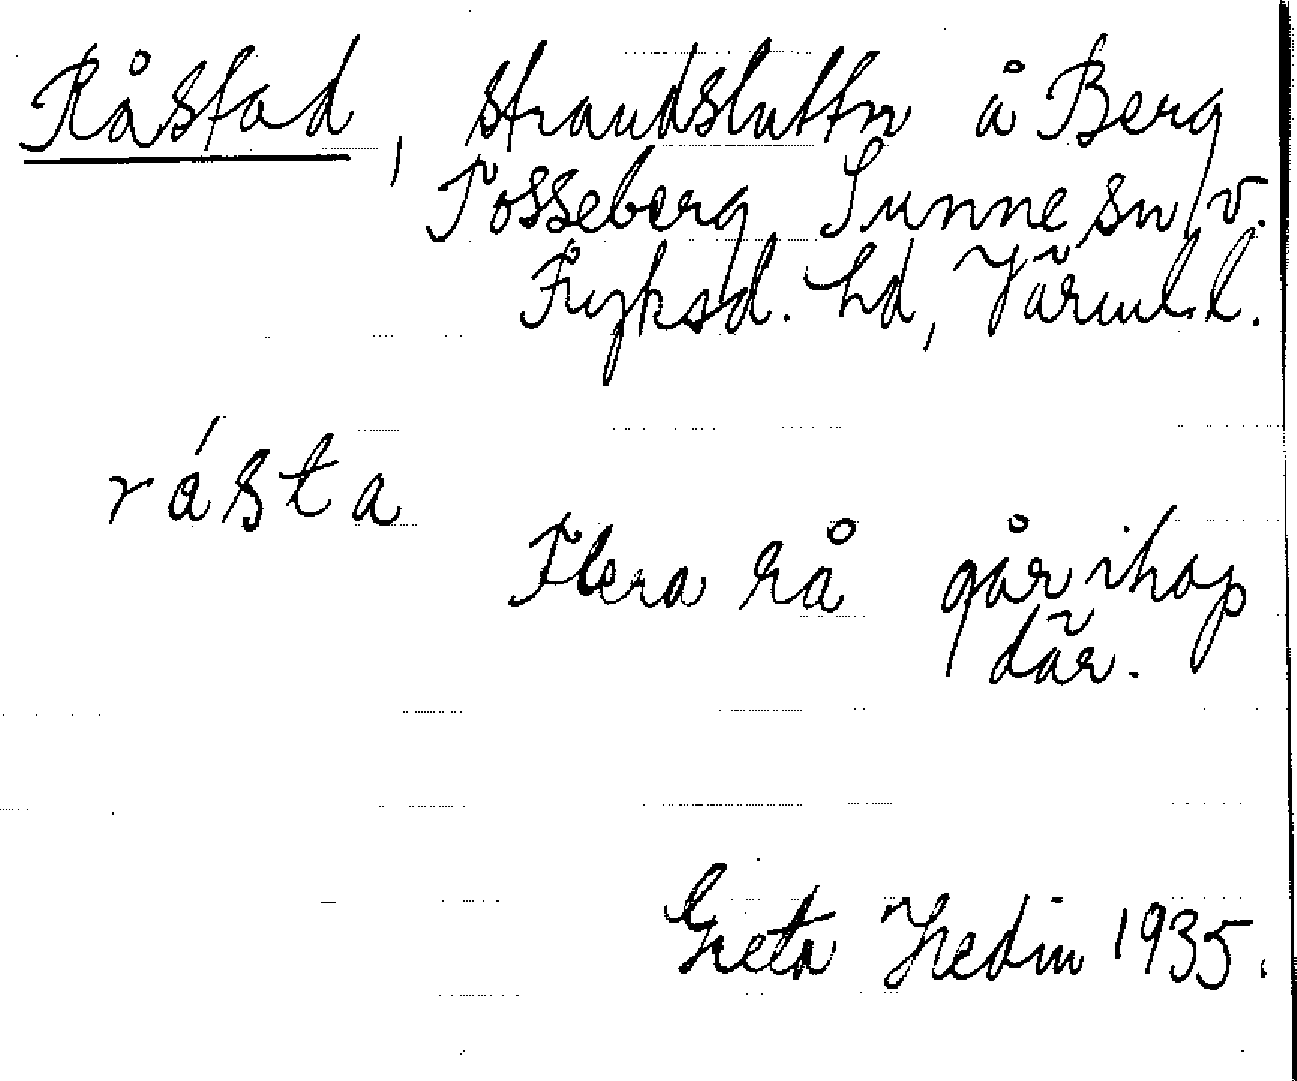 Råstad, strandsluttn å Berg
Tosseberg Sunne sn, v.
Fryksd. hd, Värml. l.
råsta
Flera rå går ihop
där.
Greta Hedin 1935.